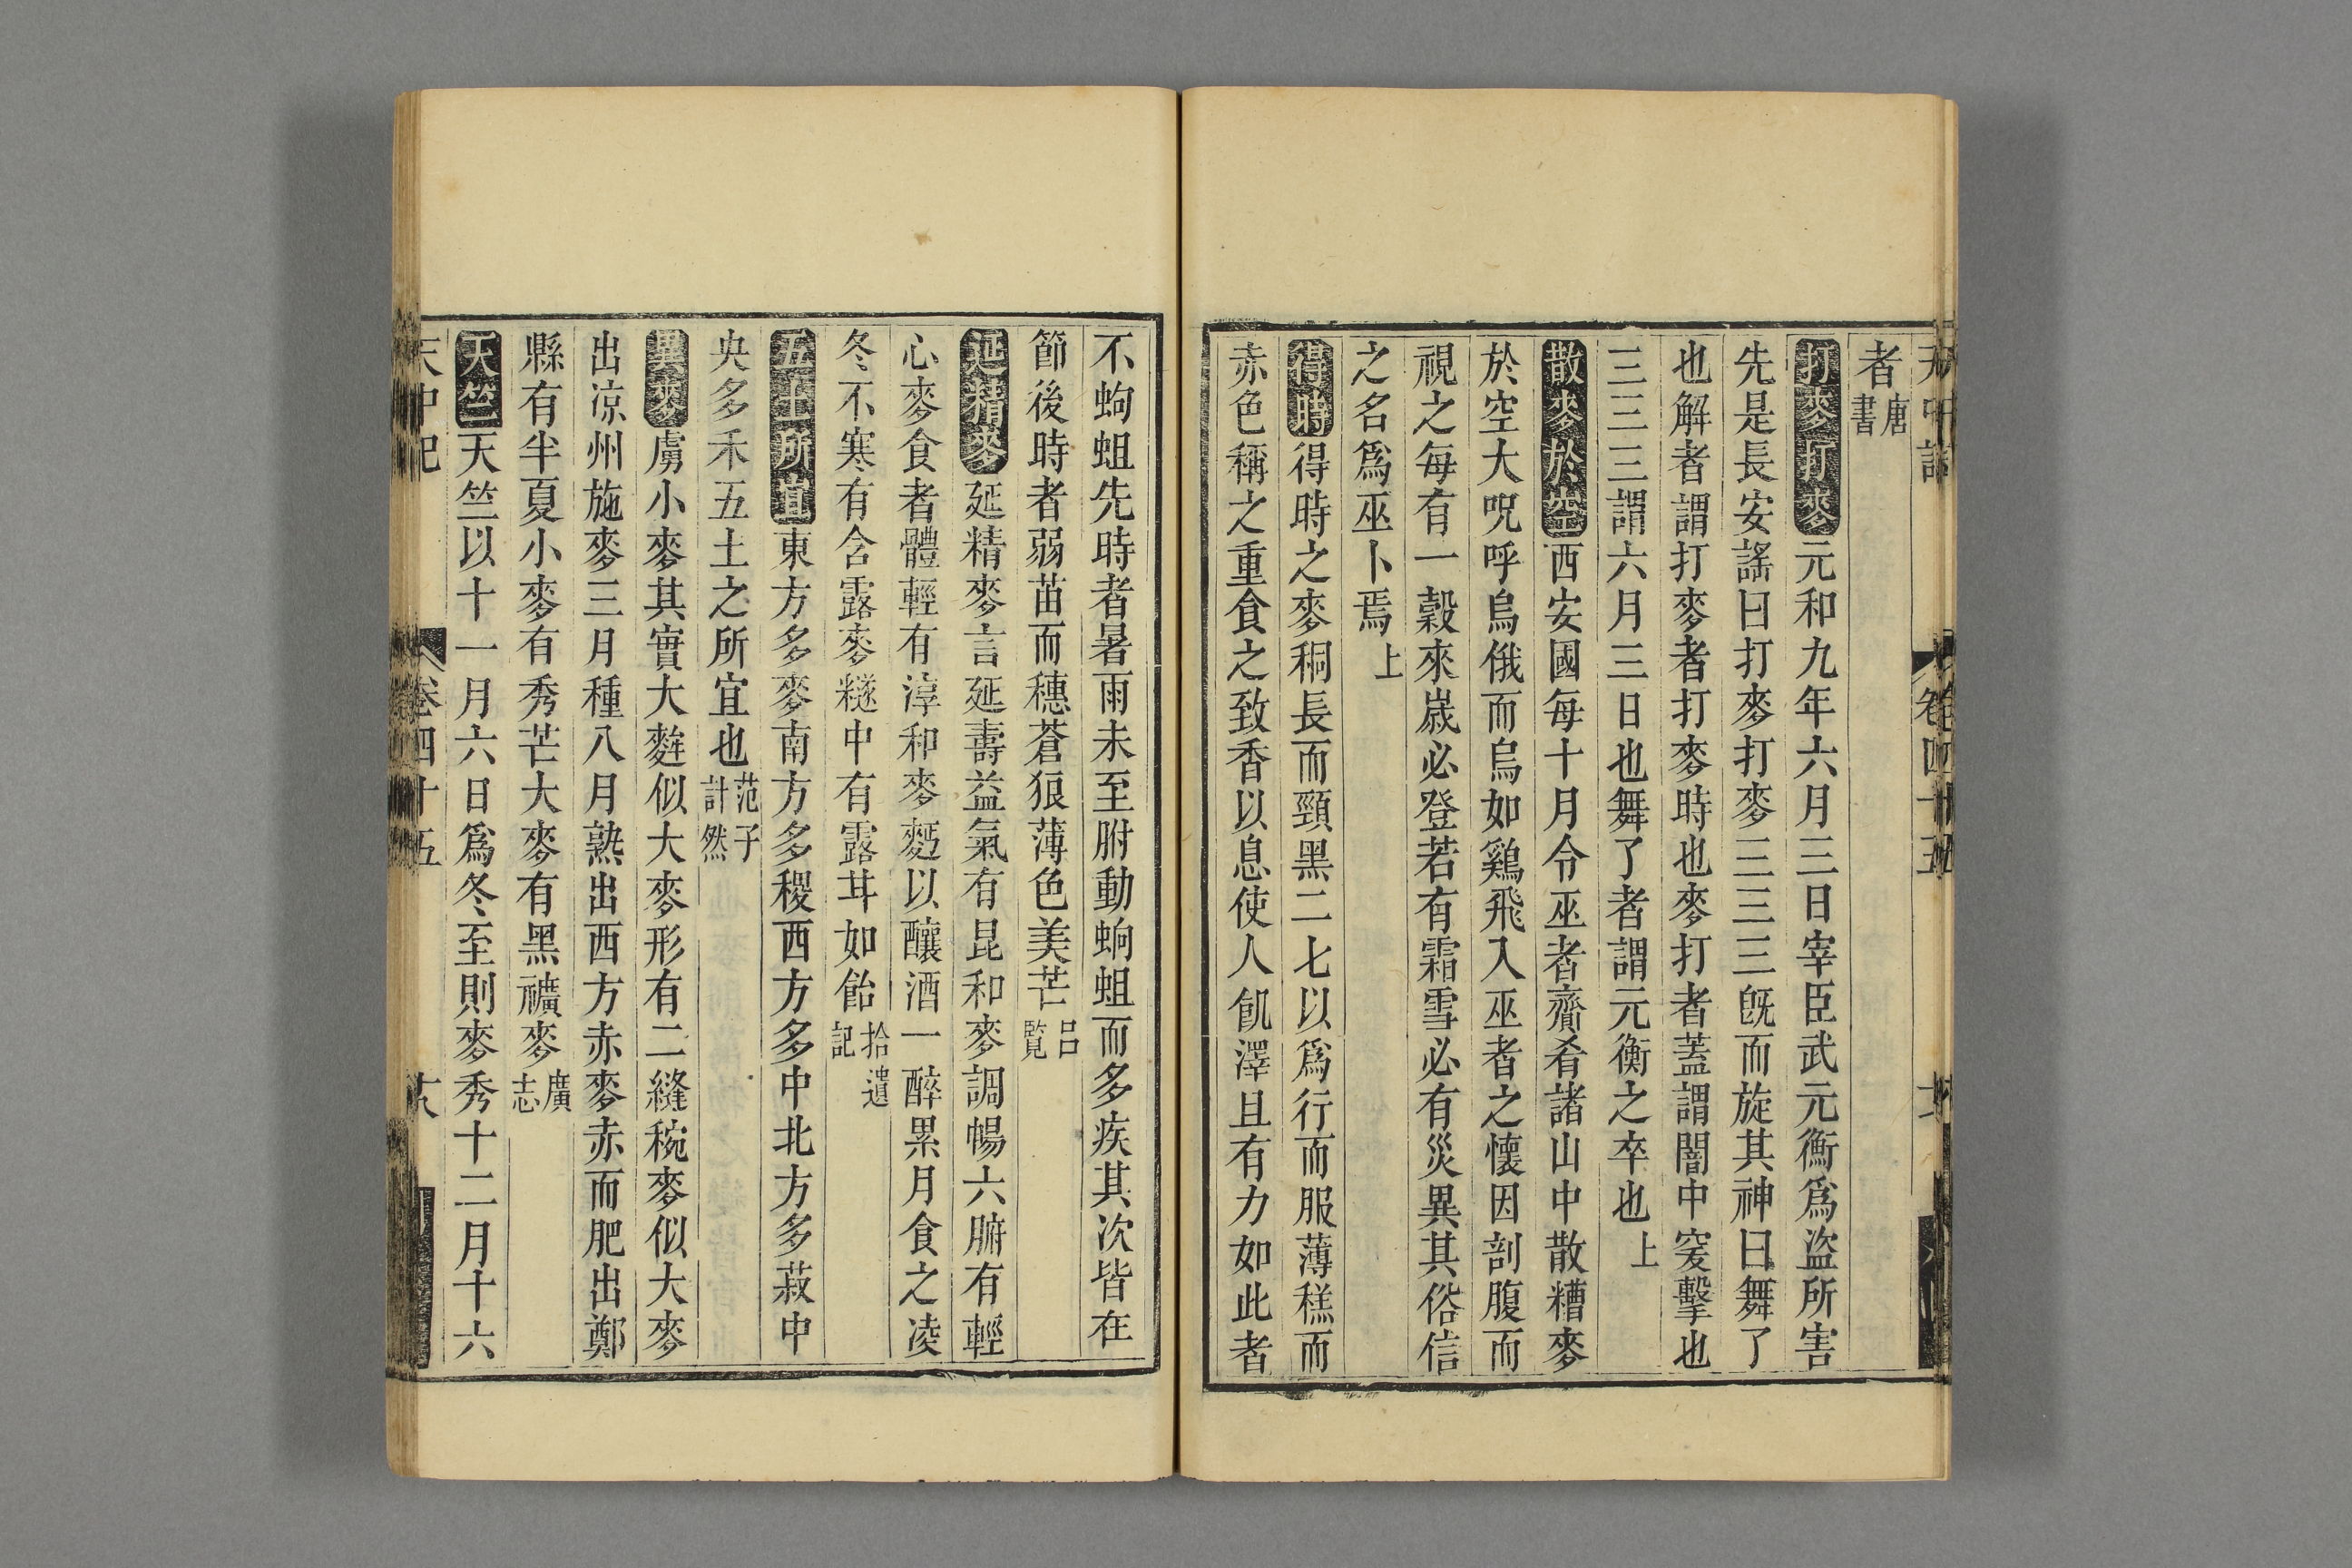 天中記 卷四十五
者唐書
打麥打麥元和九年六月三日宰臣武元衡爲盜所害
先是長安謠曰打麥打麥三三三旣而旋其神曰舞了
也解者謂打麥者打麥時也麥打者蓋謂闇中突擊也
三三三謂六月三日也舞了者謂元衡之卒也上
散麥於空西安國每十月令巫者齎肴諸山中散糟麥
於空大呪呼鳥俄而鳥如鷄飛入巫者之懷因剖腹而
視之每有一穀來歲必登若有霜雪必有災異其俗信
之名爲巫卜焉上
得時得時之麥秱長而頸黑二七以爲行而服薄糕而
赤色稱之重食之致香以息使人飢澤且有力如此者
不蚼蛆先時者暑雨未至胕動蚼蛆而多疾其次皆在
節後時者弱苗而穗蒼狼薄色美芒呂覽
延精麥延精麥言延壽益氣有昆和麥調暢六腑有輕
心麥食者體輕有淳和麥麪以釀酒一醉累月食之凌
冬不寒有含露麥穟中有露甘如飴拾遺記
五土所宜東方多麥南方多稷西方多中北方多菽中
央多禾五土之所宜也范子計然
異麥虜小麥其實大麰似大麥形有二縫䅋麥似大麥
出凉州施麥三月種八月熟出西方赤麥赤而肥出鄭
縣有半夏小麥有秀芒大麥有黑穬麥廣志
天竺天竺以十一月六日爲冬至則麥秀十二月十六
天中記 卷四十五 十八